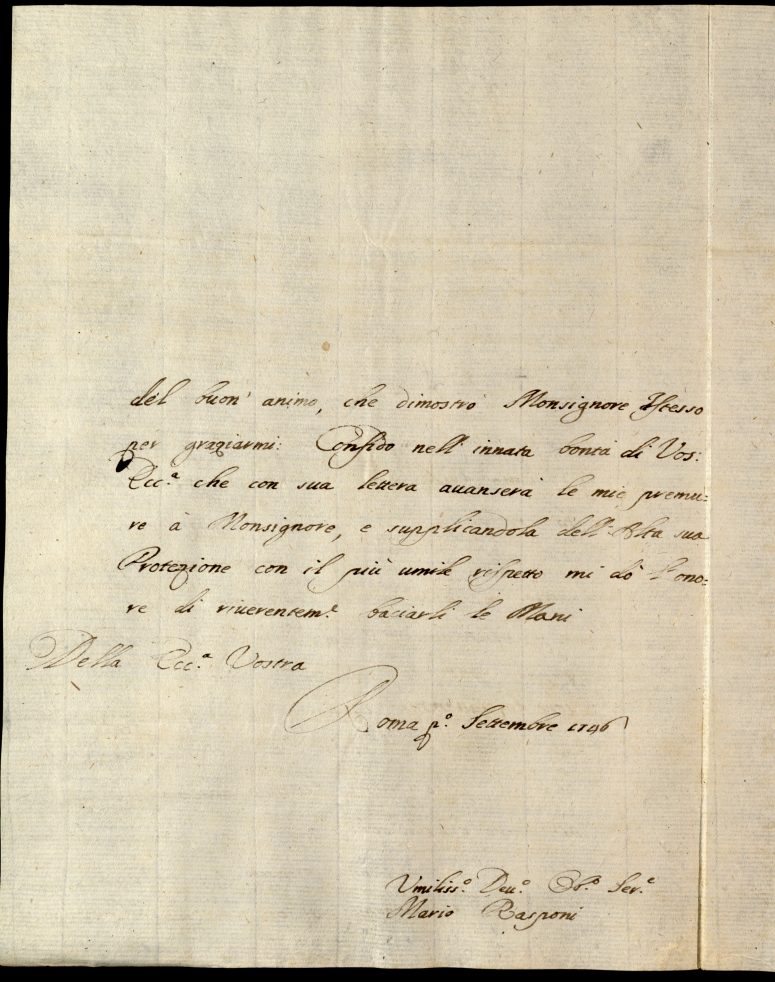 del buon' animo, che dimostrò Monsignore Istesso
per graziarmi: Confido nell' innata bontà di Vos:
Ecc.ª che con sua lettera auanserà le mie premu:
re à Monsignore, e supplicandola dell' Alta sua
Protezione con il più umile rispetto mi dò l' ono:
re di riuerentem.e baciarli le Mani
Della Ecc.ª Vostra
Roma p.º Settembre 1746
Vmiliss.º Deu.º Ob.º Ser.e
Mario Rasponi